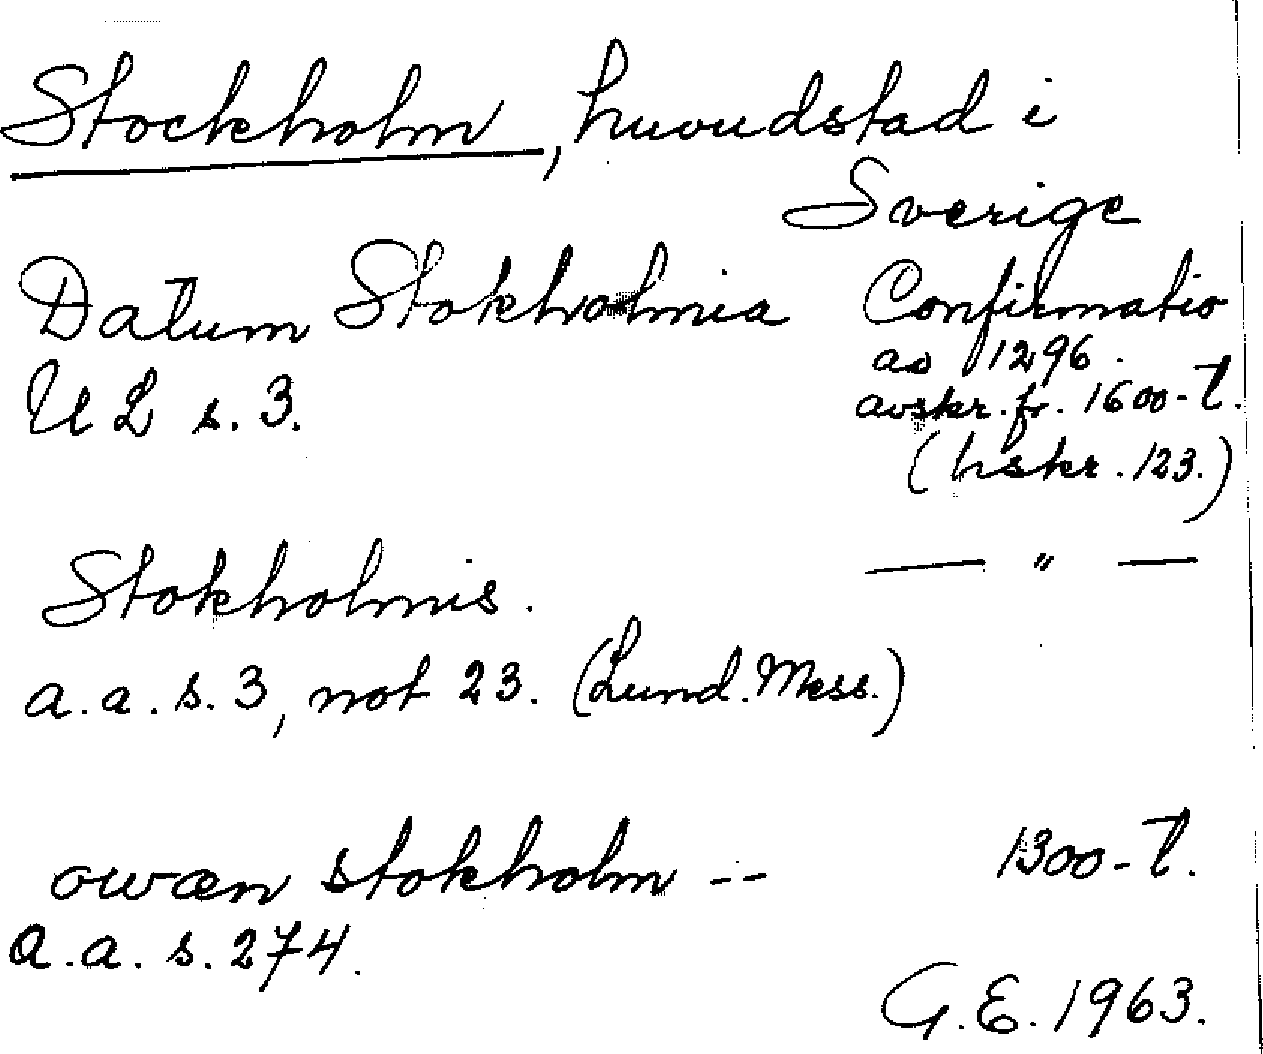 Stockholm, huvudstad i
Sverige
Datum Stokholmia Confirmatio
ao 1296.
U L s. 3. avskr. fr. 1600-t.
(hskr. 123.)
Stokholmis. — " —
a.a. s. 3, not 23. (Lund. Mess.)
owæn stokholm -- 1300-t.
a.a. s. 274.
G.E. 1963.